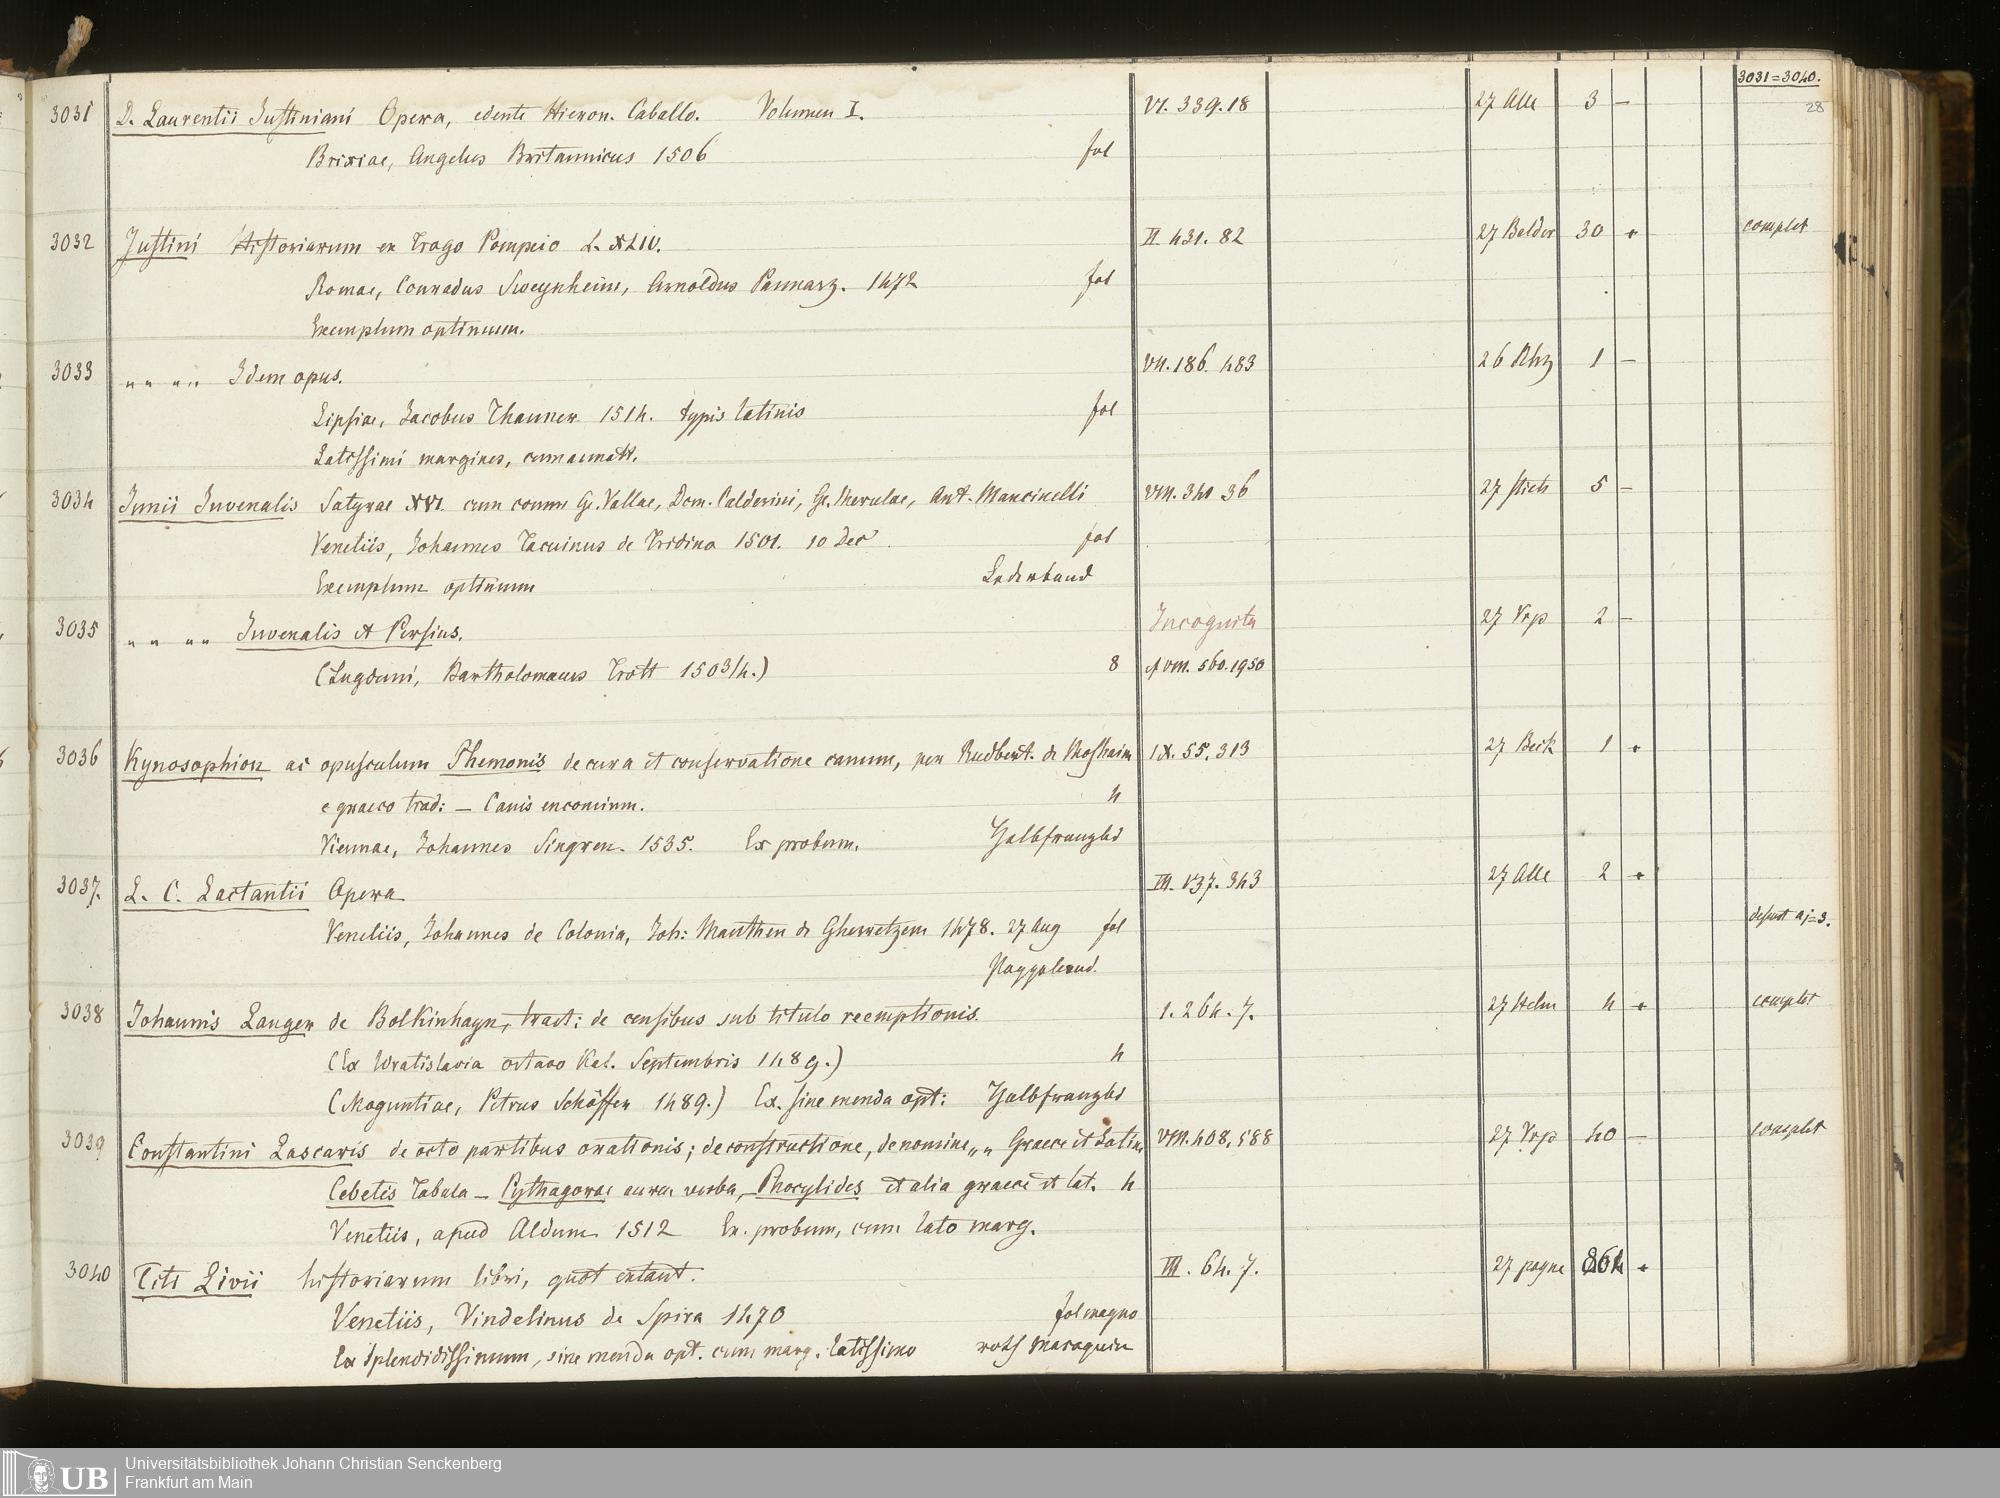 3031=3040.
28
3031 D. Laurentii Justiniani Opera, edente Hieron. Caballo. Volumen I. VI. 339.18 27 Alle 3 –
Brixiae, Angelus Britannicus 1506 fol
3032 Justini Historiarum ex Trogo Pompeio L. XLIV. II. 431. 82 27 Belder 30 + complet
Romae, Conradus Sweynheim, Arnoldus Pannarz. 1472 fol
Exemplum optimum.
3033 „„ „„ Idem opus. VII. 186. 483 26 1 –
Lipsiae, Jacobus Thanner 1514. typis latinis fol
Latissimi margines, cum annott.
3034 Junii Juvenalis Satyrae XVI. cum comm Ge. Vallae, Dom. Calderini, Ge. Merulae, Ant. Mancinelli VIII. 340 36 27 5 –
Venetiis, Johannes Tacuinus de Tridino 1501. 10 Dec fol
Exemplum optimum Lederband
3035 „„ „„ Juvenalis et Persius. Incognita 27 Vrp 2 –
(Lugduni, Bartholomaeus Trott 1503/4.) 8 cf VIII. 560. 1950
3036 Kynosophion ac opusculum Phemonis de cura et conservatione canum, per Rudbert. de Moshaim IX. 55. 313 27 Beck 1 +
e graeco trad: – Canis encomium. 4
Viennae, Johannes Singren. 1535. Ex probum. Halbfranzbd
3037. L. C. Lactantii Opera III. 137. 343 27 Alle 2 +
Venetiis, Johannes de Colonia, Joh: Manthen de Gherretzem 1478. 27 Aug fol desunt aj=3.
Pappband.
3038 Johannis Langer de Bolkinhayn, tract: de censibus sub titulo reemptionis. 1. 264. 7. 27 4 + complet
(Ex Wratislavia octavo Kal. Septembris 1489.) 4
(Moguntiae, Petrus Schöffer 1489.) Ex. sine menda opt: Halbfranzbd
3039 Constantini Lascaris de octo partibus orationis; de constructione, de nomine „„ Graece et Latine VIII. 408, 588 27 Vrp 40 – complet
Cebetis Tabula – Pythagorae aurea verba, Phocylides et alia graece et lat. 4
Venetiis, apud Aldum 1512 Ex. probum, cum lato marg.
3040 Titi Livii historiarum libri, quot extant. III. 64. 7. 27 payne +
Venetiis, Vindelinus de Spira 1470 fol magno
Ex splendidissimum, sine menda opt. cum marg. latissimo roth Maroquin
UB
Universitätsbibliothek Johann Christian Senckenberg
Frankfurt am Main